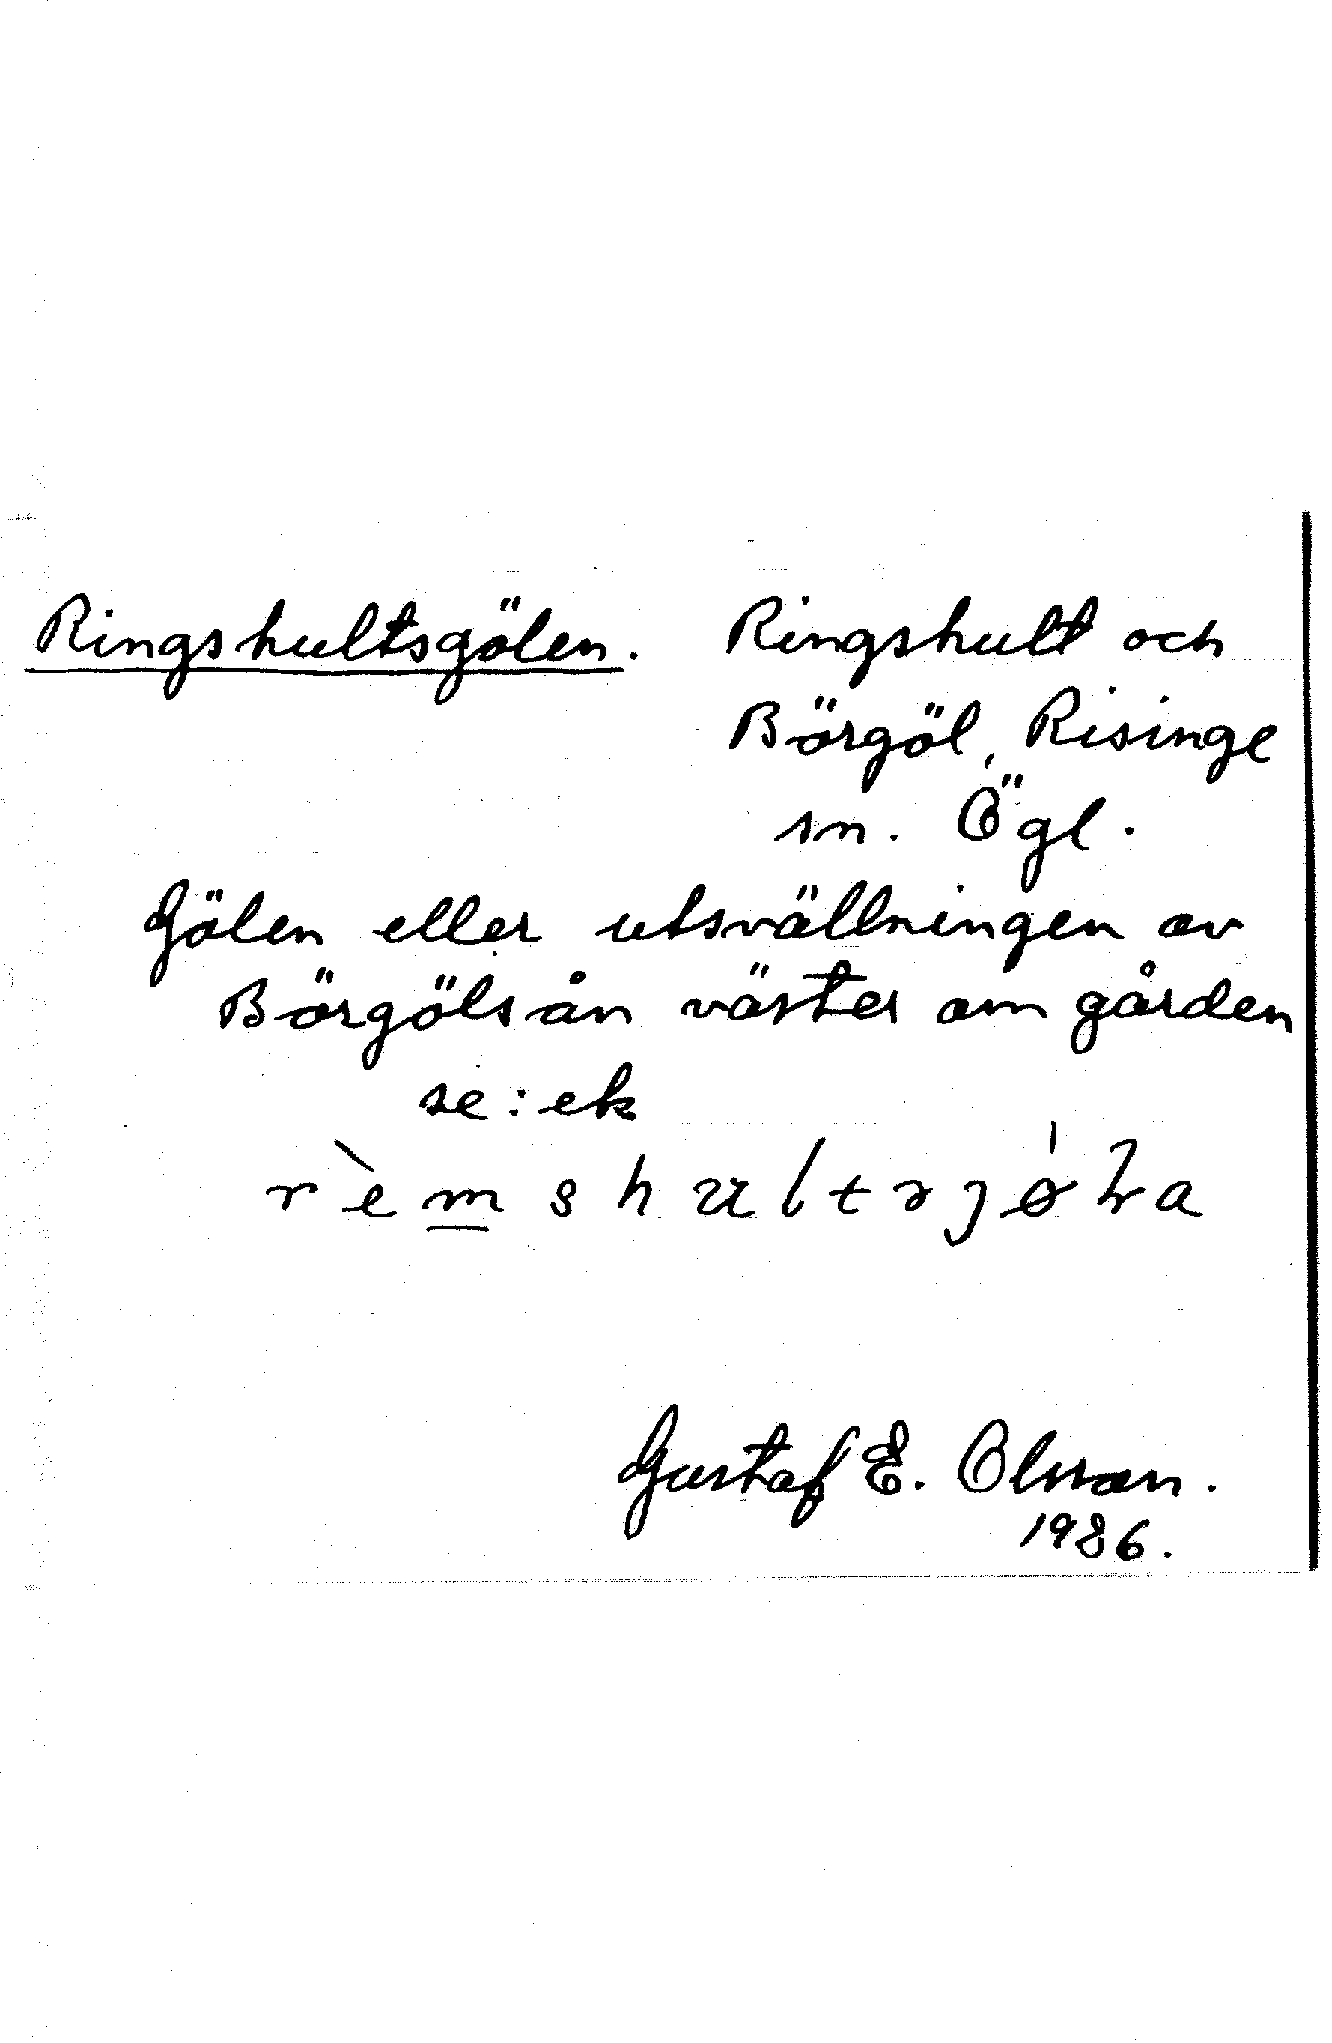 Ringshultsgölen. Ringshult och
Börgöl, Risinge
sn. Ögl.
Gölen eller utsvällningen av
Börgölsån väster om gården
se: ek
Gustaf E. Olsson.
1986.